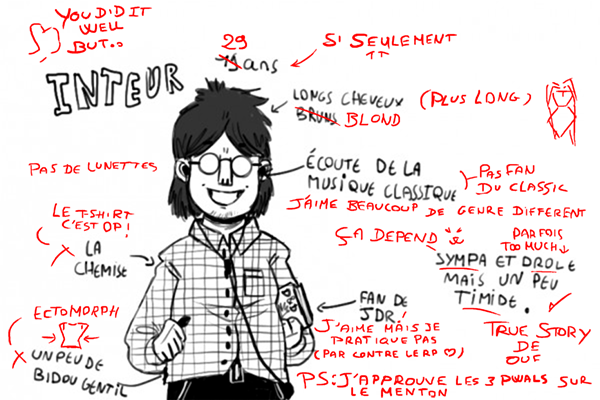 YOU DID IT
WELL
BUT..
29
ans
SI SEULEMENT
INTEUR
LONGS CHEVEUX
BRUNS BLOND
(PLUS LONG)
PAS DE LUNETTES
ÉCOUTE DE LA
MUSIQUE CLASSIQUE
PAS FAN
DU CLASSIC
J'AIME BEAUCOUP DE GENRE DIFFERENT
LE T-SHIRT
C'EST OP!
LA
CHEMISE
ÇA DEPEND
PARFOIS
TOO MUCH
SYMPA ET DROLE
MAIS UN PEU
TIMIDE.
ECTOMORPH
UN PEU DE
BIDOU GENTIL
FAN DE
JDR!
J'AIME MAIS JE
PRATIQUE PAS
(PAR CONTRE LE RP ♡)
TRUE STORY
DE
OUF
PS: J'APPROUVE LES 3 PWALS SUR
LE MENTON